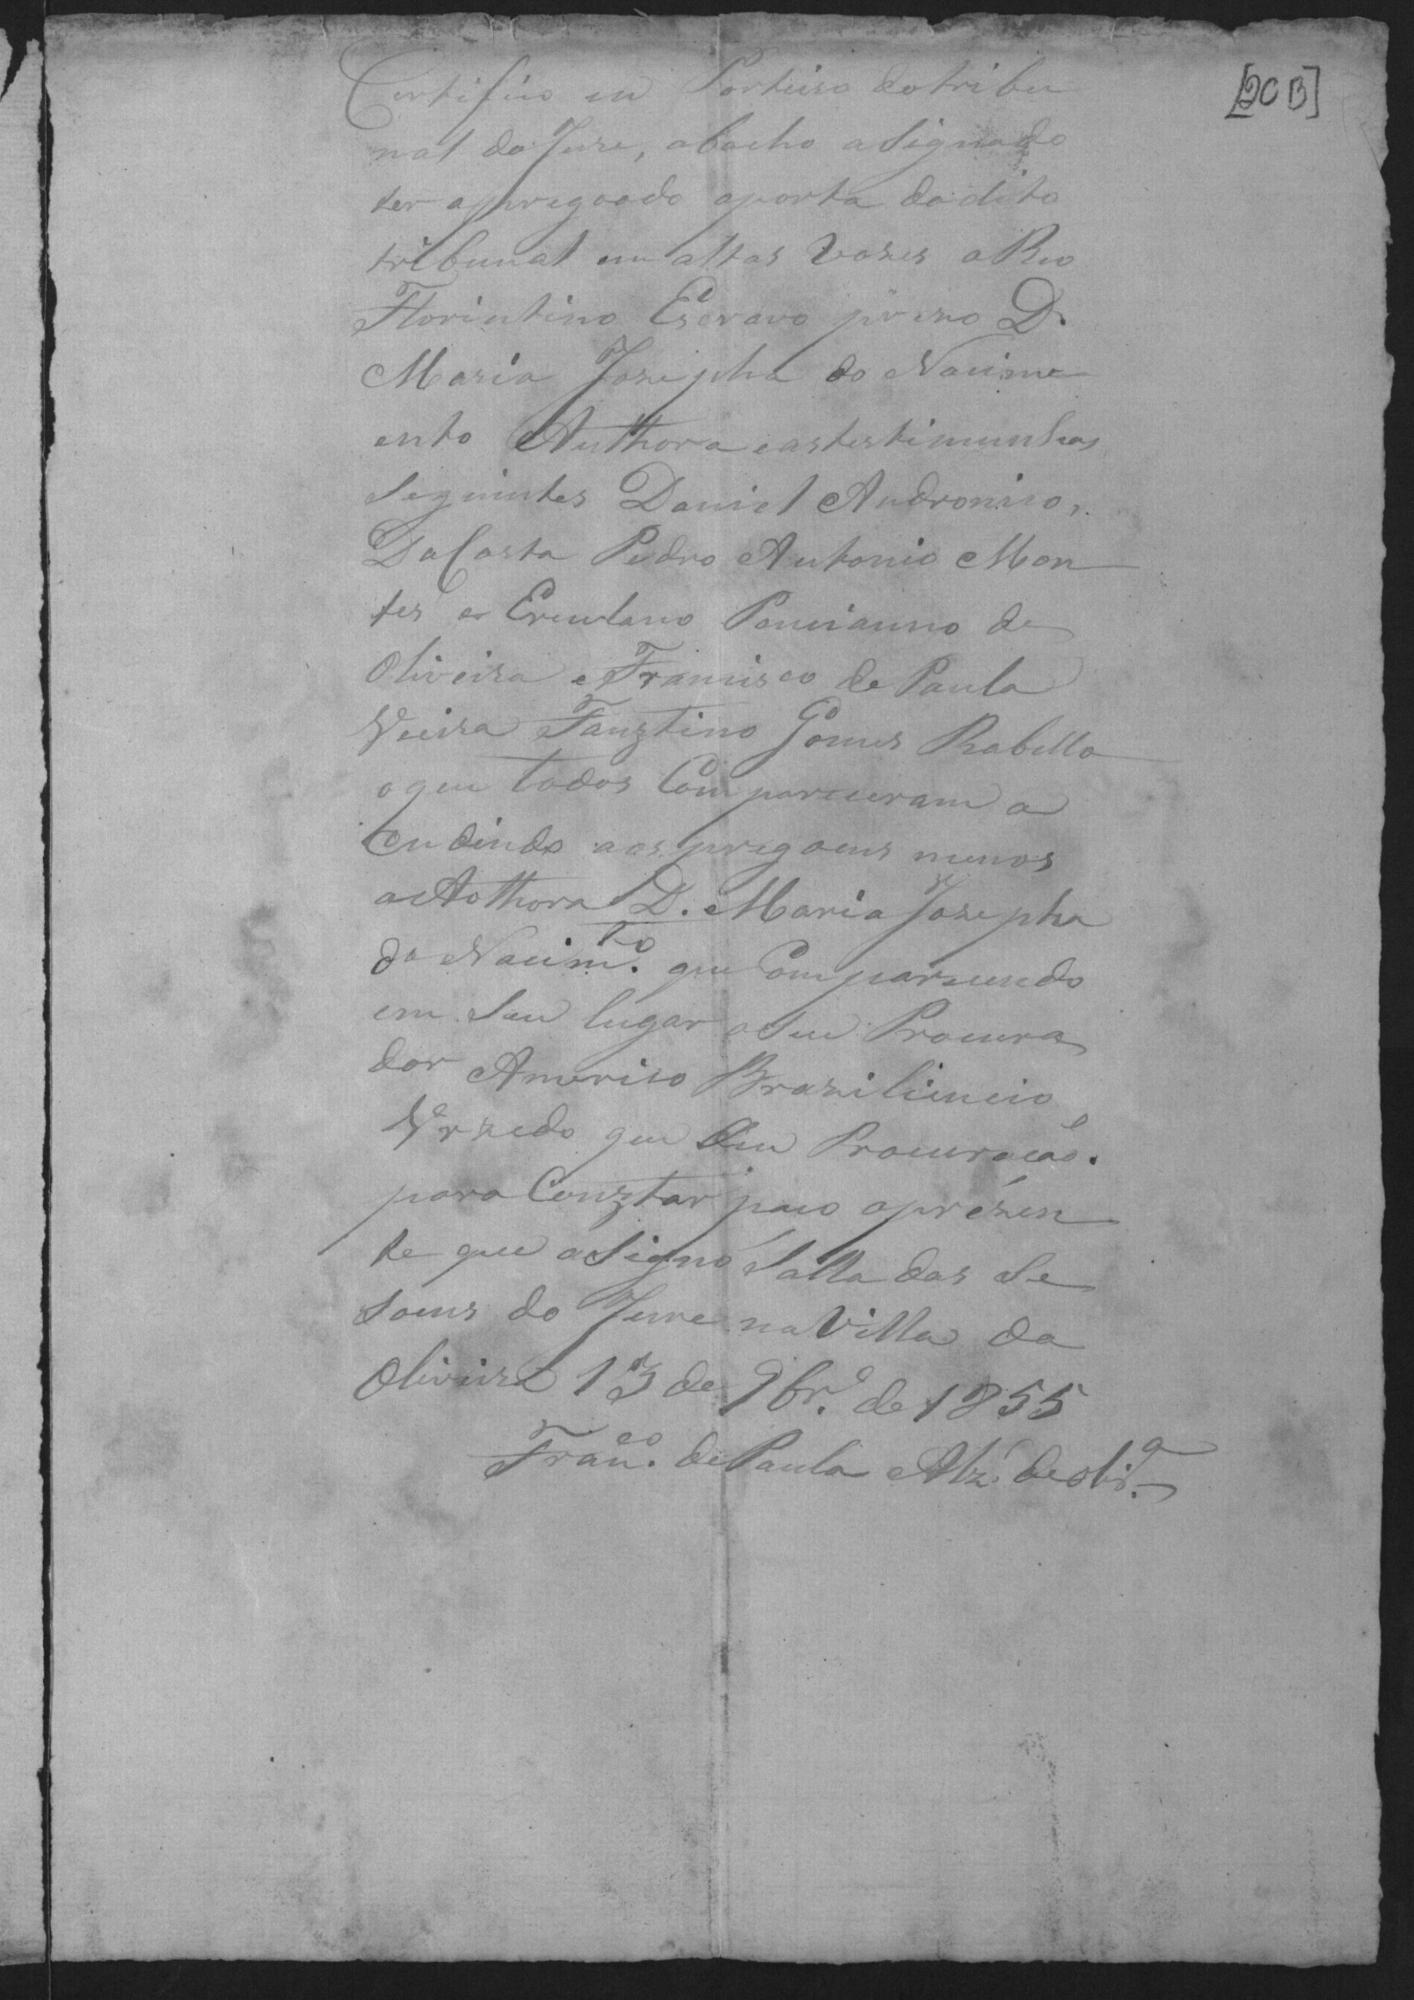 [20 B]
Certifico eu Porteiro do tribu
nal do Jure, abacho asignado
ter apregoado aporta do dito
tribunal em altas vozes o Reo
Florintino Escravo prezo D.
Maria Jozepha do Nacime
ento Authora e as testimunhas
seguintes Daniel Andronico,
Da Costa Pedro Antonio Mon
tes e Erculano Poncianno de
Oliveira e Francisco de Paula
Vieira Fauztino Gomes Rabello
o que todos Comparceram a
cudindo aos pregoens menos
a Aothora D. Maria Jozepha
do Nacim.to que Comparcendo
em seu lugar o seu Procura
dor Americo Braziliencio
que deu Procuração.
para Conztar paço aprézen
te que asigno Salla das Se
soens do Jure na Villa da
Oliveira 13 de 9br.o de 1855
Fran.co de Paula Alz de Oli.a